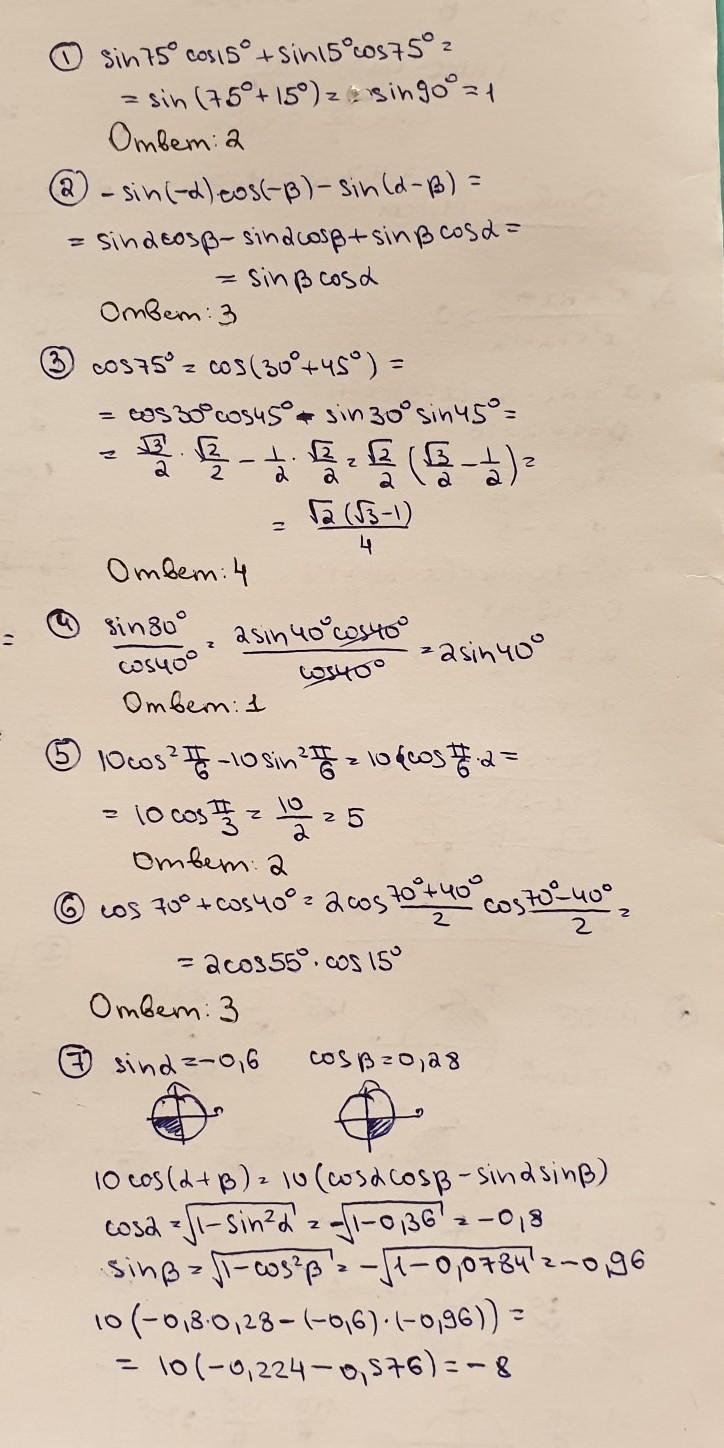 ① sin75° cos15° + sin15°cos75° =
= sin (75°+15°) = sin90° = 1
Ответ: 2
② - sin(-α) cos(-β) - sin(α-β) =
= sinαcosβ - sinαcosβ + sinβ cosα =
= sinβ cosα
Ответ: 3
③ cos75° = cos(30°+45°) =
= cos30°cos45° - sin30°sin45° =
= √3/2 · √2/2 - 1/2 · √2/2 = √2/2 (√3/2 - 1/2) =
= √2 (√3-1)/4
Ответ: 4
= ④ sin80°/cos40° = 2sin40°cos40°/cos40° = 2sin40°
Ответ: 1
⑤ 10cos² π/6 - 10sin² π/6 = 10 cos π/6 · 2 =
= 10 cos π/3 = 10/2 = 5
Ответ: 2
⑥ cos 70° + cos40° = 2cos 70°+40°/2 cos 70°-40°/2 =
= 2cos55° · cos15°
Ответ: 3
⑦ sinα = -0,6 cosβ = 0,28
10cos(α+β) = 10 (cosαcosβ - sinαsinβ)
cosα = √1-sin²α = -√1-0,36 = -0,8
sinβ = √1-cos²β = -√1-0,0784 = -0,96
10(-0,8·0,28-(-0,6)·(-0,96)) =
= 10(-0,224-0,576) = -8